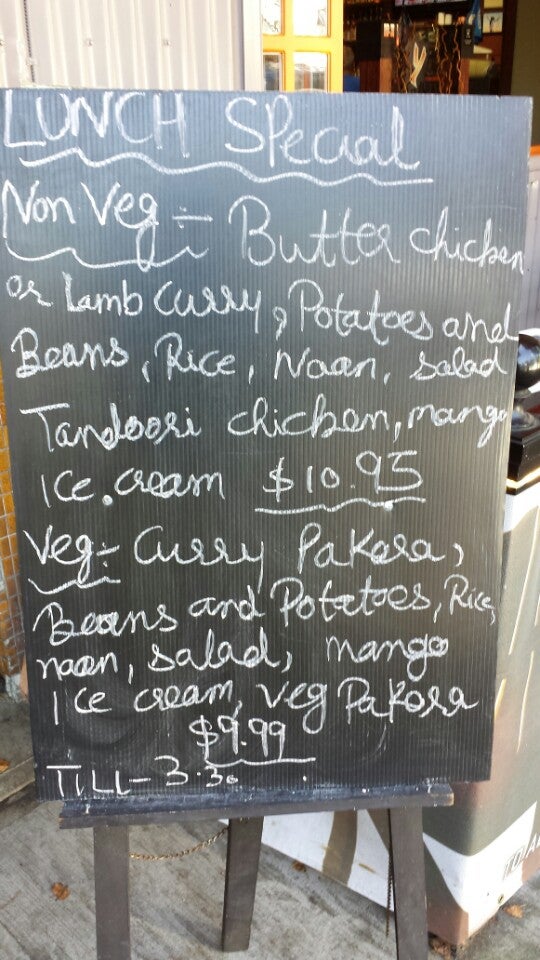 LUNCH Special
Non Veg ÷ Butter chicken
or Lamb Curry, Potatoes and
Beans, Rice, Naan, salad
Tandoori chicken, mango
Ice.cream $10.95
Veg÷ Curry Pakora,
Beans and Potatoes, Rice,
naan, salad, mango
Ice cream, veg Pakora
$9.99
TILL-3.30